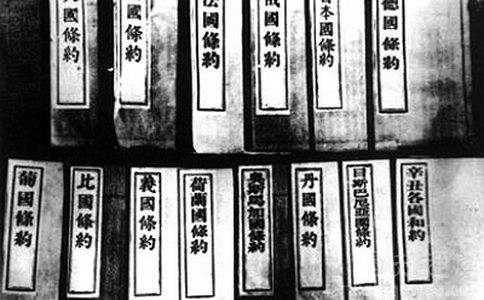 國條約
國條約
法國條約
俄國條約
日本國條約
德國條約
葡國條約
比國條約
義國條約
荷蘭國條約
奧斯馬加國條約
丹國條約
日斯巴尼亞國條約
辛丑各國和約